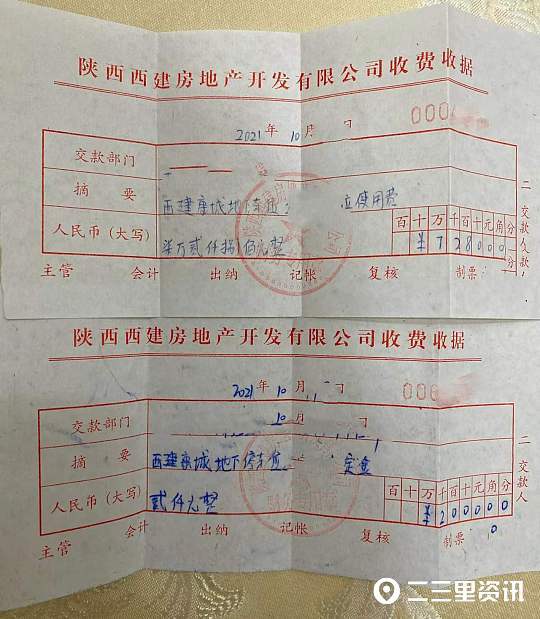 陕西西建房地产开发有限公司收费收据
000
2021年 10月
交款部门
摘要 西建 城地下 位使用费
人民币(大写) 柒万贰仟捌佰元整 百十万千百十元角分
¥7280000
主管 会计 出纳 记帐 复核 制票
二交款人
陕西西建房地产开发有限公司收费收据
000
2021年 10月
交款部门 10
摘要 西建 城地下停车位 定金
人民币(大写) 贰仟元整 百十万千百十元角分
¥200000
主管 会计 出纳 记帐 复核 制票
二交款人
二三里资讯